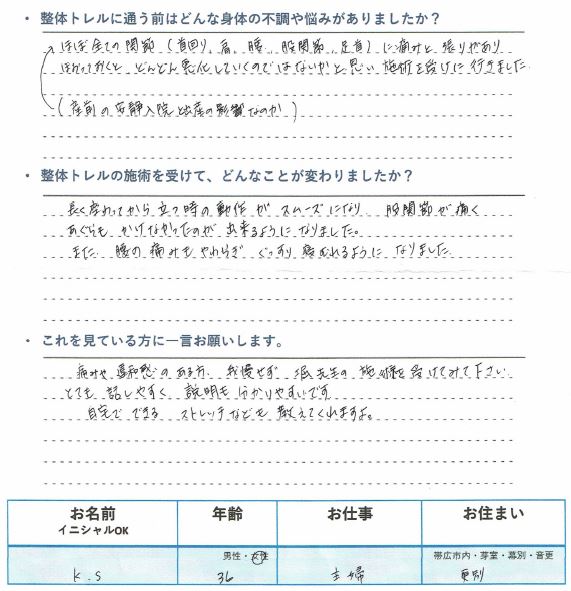 ・ 整体トレルに通う前はどんな身体の不調や悩みがありましたか？
ほぼ全ての関節（首回り、肩、腰、股関節、足首）に痛みと張りがあり
ほおっておくと どんどん悪化していくのではないかと思い 施術を受けに行きました
（産前の安静入院と出産の影響なのか）
・ 整体トレルの施術を受けて、どんなことが変わりましたか？
長く座わってから立つ時の動作が スムーズになり 股関節が痛く
あぐらも かけなかったのが 出来るようになりました。
また 腰の痛みも やわらぎ ぐっすり 寝むれるように なりました
・ これを見ている方に一言お願いします。
痛みや 違和感のある方 我慢せず 先生の 施術を受けてみて下さい
とても 話しやすく 説明も 分かりやすいです
自宅で できる ストレッチなども 教えてくれますよ。
お名前 年齢 お仕事 お住まい
イニシャルOK
男性・女性 帯広市内・芽室・幕別・音更
K.S 36 主婦 更別